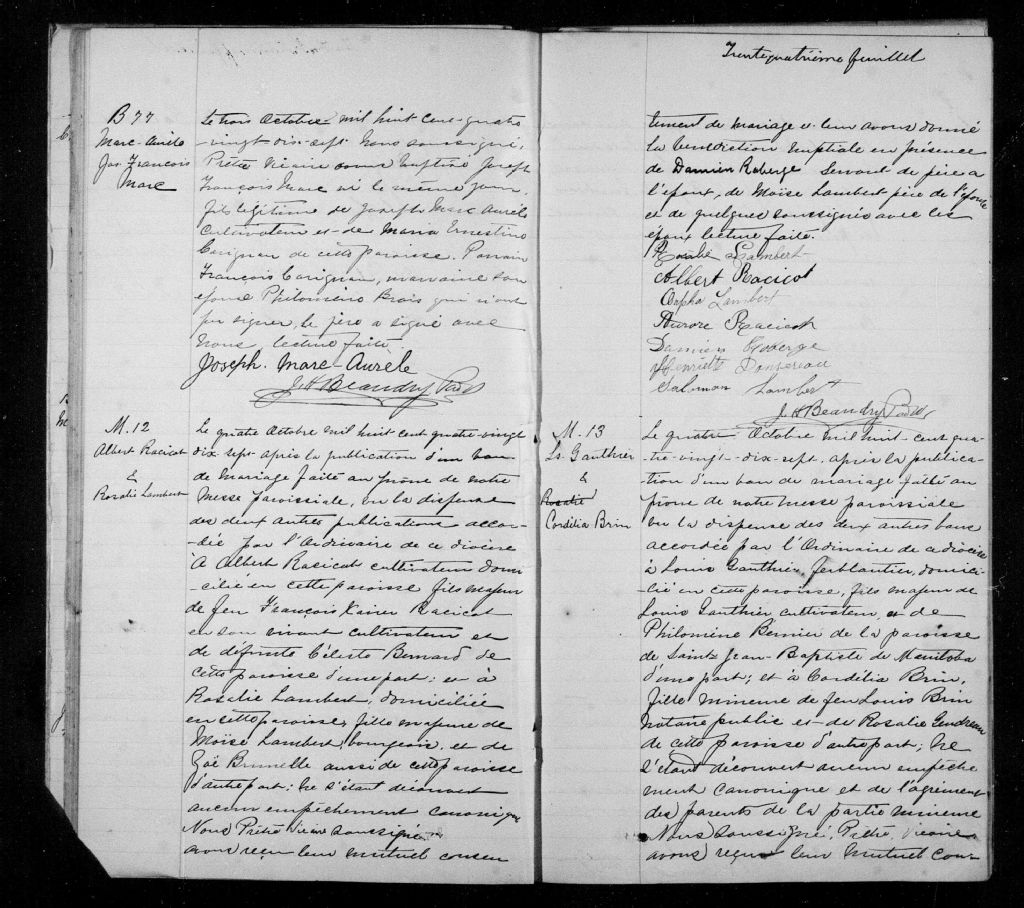 B 77
Marc-Aurèle
Jos. François
Marc
Le trois Octobre mil huit cent-quatre
-vingt dix-sept Nous soussigné,
Prêtre Vicaire avons baptisé Joseph
François Marc né le même jour,
fils légitime de Joseph Marc Aurèle
Cultivateur et de Maria Ernestine
Carignan de cette paroisse. Parrain
François Carignan, marraine son
épouse Philomène Brais qui n'ont
pu signer, le père a signé avec
nous, lecture faite.
Joseph. Marc-Aurèle
J. H Beaudry Ptre V.
M. 12
Albert Racicot
&
Rosalie Lambert
Le quatre Octobre mil huit cent quatre-vingt
dix-sept après la publication d'un ban
de mariage faite au prône de notre
Messe paroissiale, vu la dispense
des deux autres publications accor-
-dée par l'Ordinaire de ce diocèse
À Albert Racicot cultivateur domi
cilié en cette paroisse fils majeur
de feu François Xavier Racicot
en son vivant cultivateur et
de défunte Céleste Bernard de
cette paroisse d'une part; et à
Rosalie Lambert, domiciliée
en cette paroisse, fille majeure de
Moïse Lambert, bourgeois, et de
Zoé Brunelle aussi de cette paroisse
d'autre part; ne s'étant découvert
aucun empêchement canonique
Nous Prêtre Vicaire soussigné
avons reçu leur mutuel consen
Trentequatrième feuillet
tement de mariage et leur avons donné
la bénédiction nuptiale en présence
de Damien Roberge Servant de père à
l'époux, de Moïse Lambert père de l'épouse
et de quelques soussignés avec les
époux lecture faite.
Rosalie Lambert
Albert Racicot
Orpha Lambert
Aurore Racicot
Damien Roberge
Henriette Dansereau
Salomon Lambert
J. H Beaudry Ptre V.
M. 13
Ls. Gauthier
&
Rosalie
Cordélia Brin
Le quatre Octobre mil huit-cent qua-
-tre-vingt-dix-sept, après la publica-
tion d'un ban de mariage faite au
prône de notre messe paroissiale
vu la dispense des deux autres bans
accordée par l'Ordinaire de ce diocèse
à Louis Gauthier, ferblantier, domici-
-lié en cette paroisse, fils majeur de
Louis Gauthier cultivateur, et de
Philomène Bernier de la paroisse
de Saint-Jean-Baptiste de Manitoba
d'une part; et à Cordélia Brin,
fille mineure de feu Louis Brin
Notaire public et de Rosalie Gendreau
de cette paroisse d'autre part; Ne
s'étant découvert aucun empêche
ment canonique et de l'agrément
des parents de la partie mineure
Nous soussigné, Prêtre, Vicaire
avons reçu leur mutuel con-